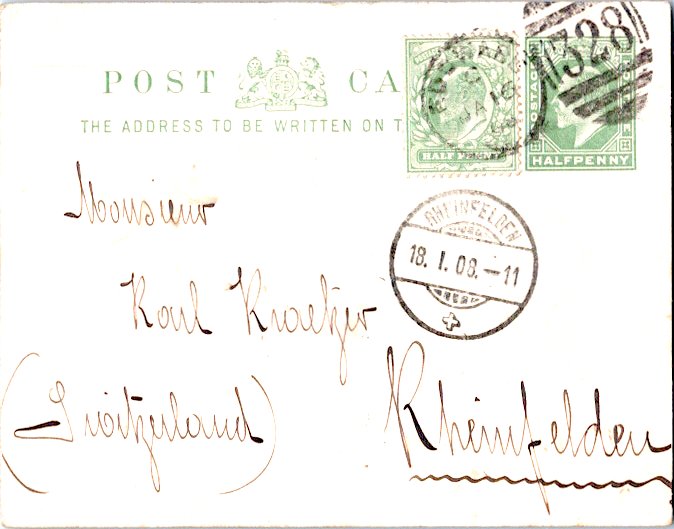 POST CA
THE ADDRESS TO BE WRITTEN ON T
HALFPENNY
HALFPENNY
328
JA 16
Monsieur
RHEINFELDEN
18. I. 08. - 11
Karl Kraetzer
(Switzerland)
Rheinfelden